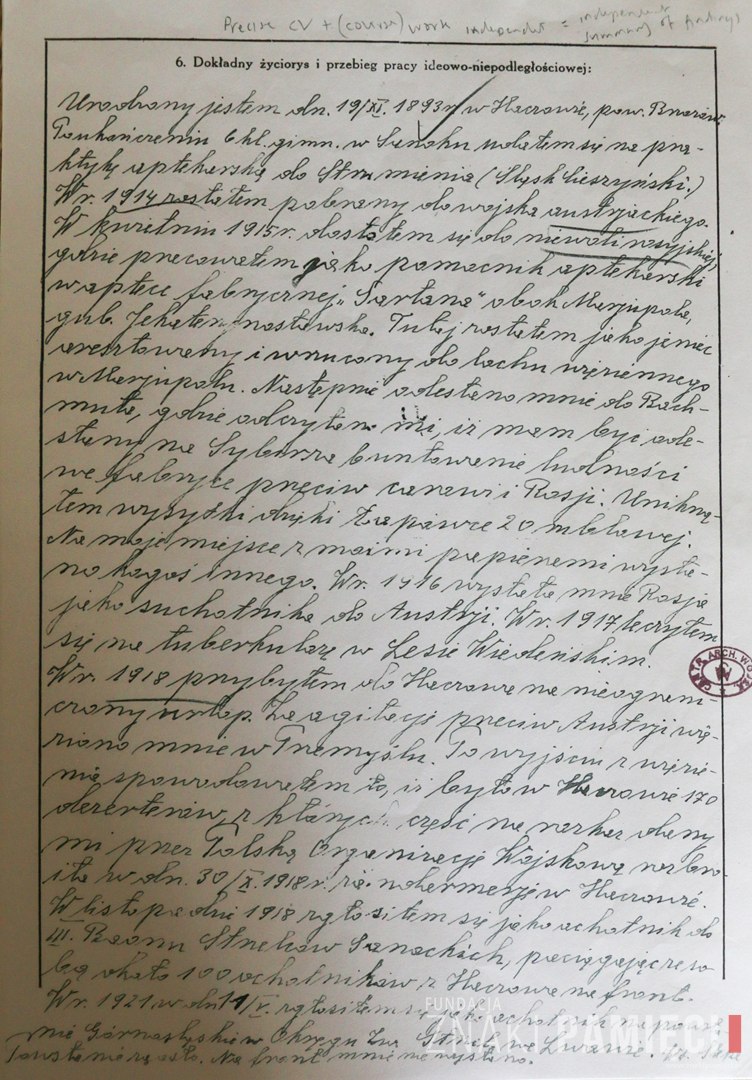 Precise CV + (course) work independent = independent
summary of findings
6. Dokładny życiorys i przebieg pracy ideowo-niepodległościowej:
Urodzony jestem dn. 19/XI. 1893 r. w Haczowie, pow. Brzozów.
Po ukończeniu 6 kl. gimn. w Sanoku udałem się na pra-
ktykę aptekarską do Strumienia (Śląsk Cieszyński.)
W r. 1914 zostałem pobrany do wojska austrjackiego.
W kwietniu 1915 r. dostałem się do niewoli rosyjskiej,
gdzie pracowałem jako pomocnik aptekarski
w aptece fabrycznej „Sartana" obok Marjupola,
gub. Jekaterynosławska. Tutaj zostałem jako jeniec
aresztowany i wrzucony do lochu więziennego
w Marjupolu. Następnie odesłano mnie do Bach-
muta, gdzie odczytano mi, iż mam być ode-
słany na Sybir za buntowanie ludności
we fabryce przeciw carowi i Rosji. Unikną-
łem wysyłki dzięki łapówce 20 rublowej.
Na moje miejsce z moimi papierami wysła-
no kogoś innego. W r. 1916 wysłała mnie Rosja
jako suchotnika do Austrji. W r. 1917 leczyłem
się na tuberkulozę w Lesie Wiedeńskim.
W r. 1918 przybyłem do Haczowa na nieograni-
czony urlop. Za agitację przeciw Austrji wię-
ziono mnie w Przemyślu. Po wyjściu z więzie-
nia spowodowałem to, iż było w Haczowie 170
dezerterów, z których część na rozkaz dany
mi przez Polską Organizację Wojskową rozbro-
iła w dn. 30/X. 1918 r. żandarmerję w Haczowie.
W listopadzie 1918 zgłosiłem się jako ochotnik do
III. Baonu Strzelców Sanockich, pociągając za so-
bą około 100 ochotników z Haczowa na front.
W r. 1921 w dn. 11/V. zgłosiłem się jako ochotnik na powsta-
nie Górnośląskie w Okręgu Zw. Strzel. we Lwowie.
Powstanie Na front mnie nie wysłano.
CENTR. ARCH. WOJSK
FUNDACJA
ZNAKI PAMIĘCI